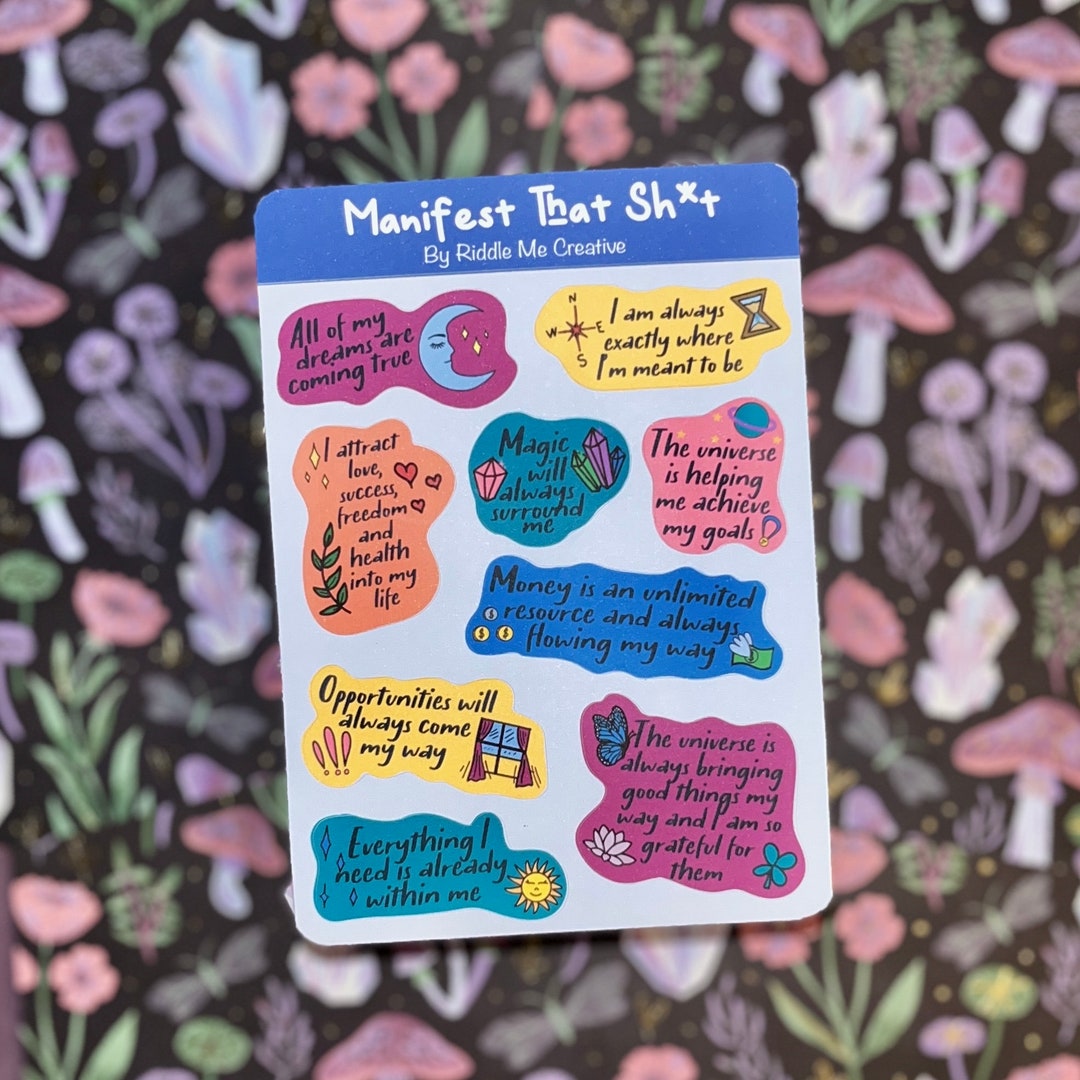 Manifest That Sh*t
By Riddle Me Creative
All of my
dreams are
coming true
N
W E
S
I am always
exactly where
I'm meant to be
I attract
love,
success,
freedom
and
health
into my
life
Magic
will
always
surround
me
The universe
is helping
me achieve
my goals
Money is an unlimited
resource and always
flowing my way
$
$ $
$
Opportunities will
always come
my way
!!!
The universe is
always bringing
good things my
way and I am so
grateful for
them
Everything I
need is already
within me